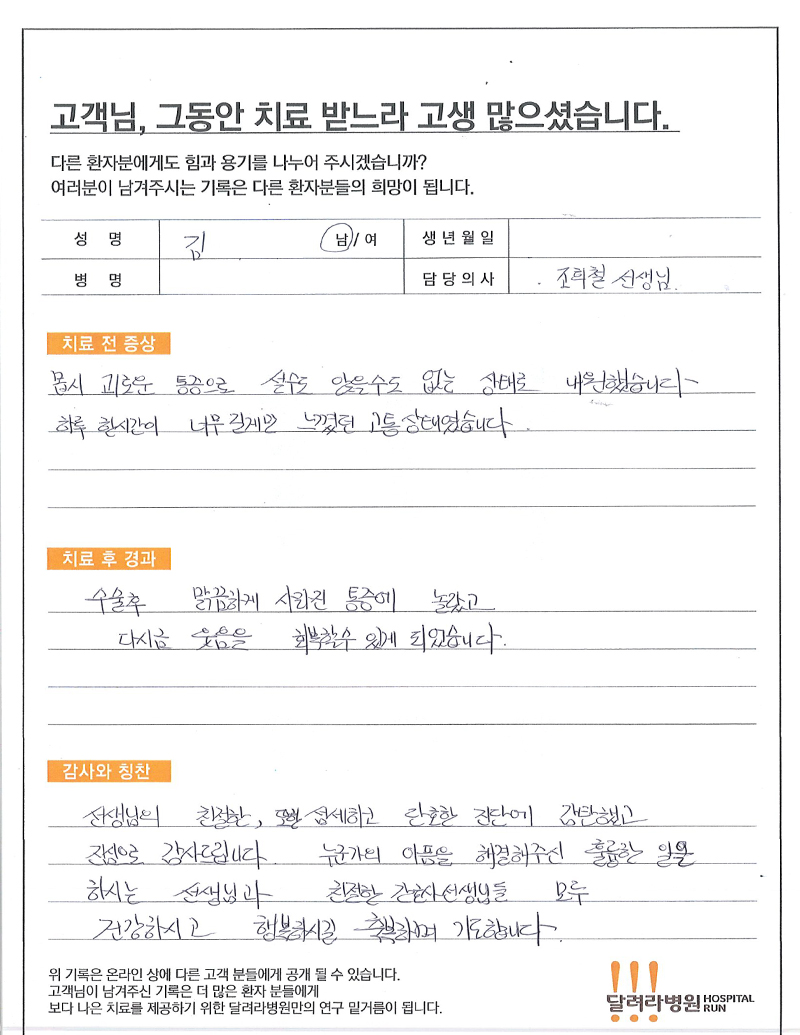 고객님, 그동안 치료 받느라 고생 많으셨습니다.
다른 환자분에게도 힘과 용기를 나누어 주시겠습니까?
여러분이 남겨주시는 기록은 다른 환자분들의 희망이 됩니다.
성 명 김 남/여 생년월일
병 명 담당의사 조희철 선생님.
치료 전 증상
몹시 괴로운 통증으로 설수도 앉을수도 없는 상태로 내원했습니다
하루 한시간이 너무 길게만 느꼈던 고통상태였습니다.
치료 후 경과
수술후 말끔하게 사라진 통증에 놀랐고
다시금 웃음을 회복할수 있게 되었습니다.
감사와 칭찬
선생님의 친절한, 또한 섬세하고 단호한 진단에 감탄했고
진심으로 감사드립니다. 누군가의 아픔을 해결해주신 훌륭한 일을
하시는 선생님과 친절한 간호사선생님들 모두
건강하시고 행복하시길 축복하며 기도합니다.
위 기록은 온라인 상에 다른 고객 분들에게 공개 될 수 있습니다.
고객님이 남겨주신 기록은 더 많은 환자 분들에게
보다 나은 치료를 제공하기 위한 달려라병원만의 연구 밑거름이 됩니다.
달려라병원 HOSPITAL RUN